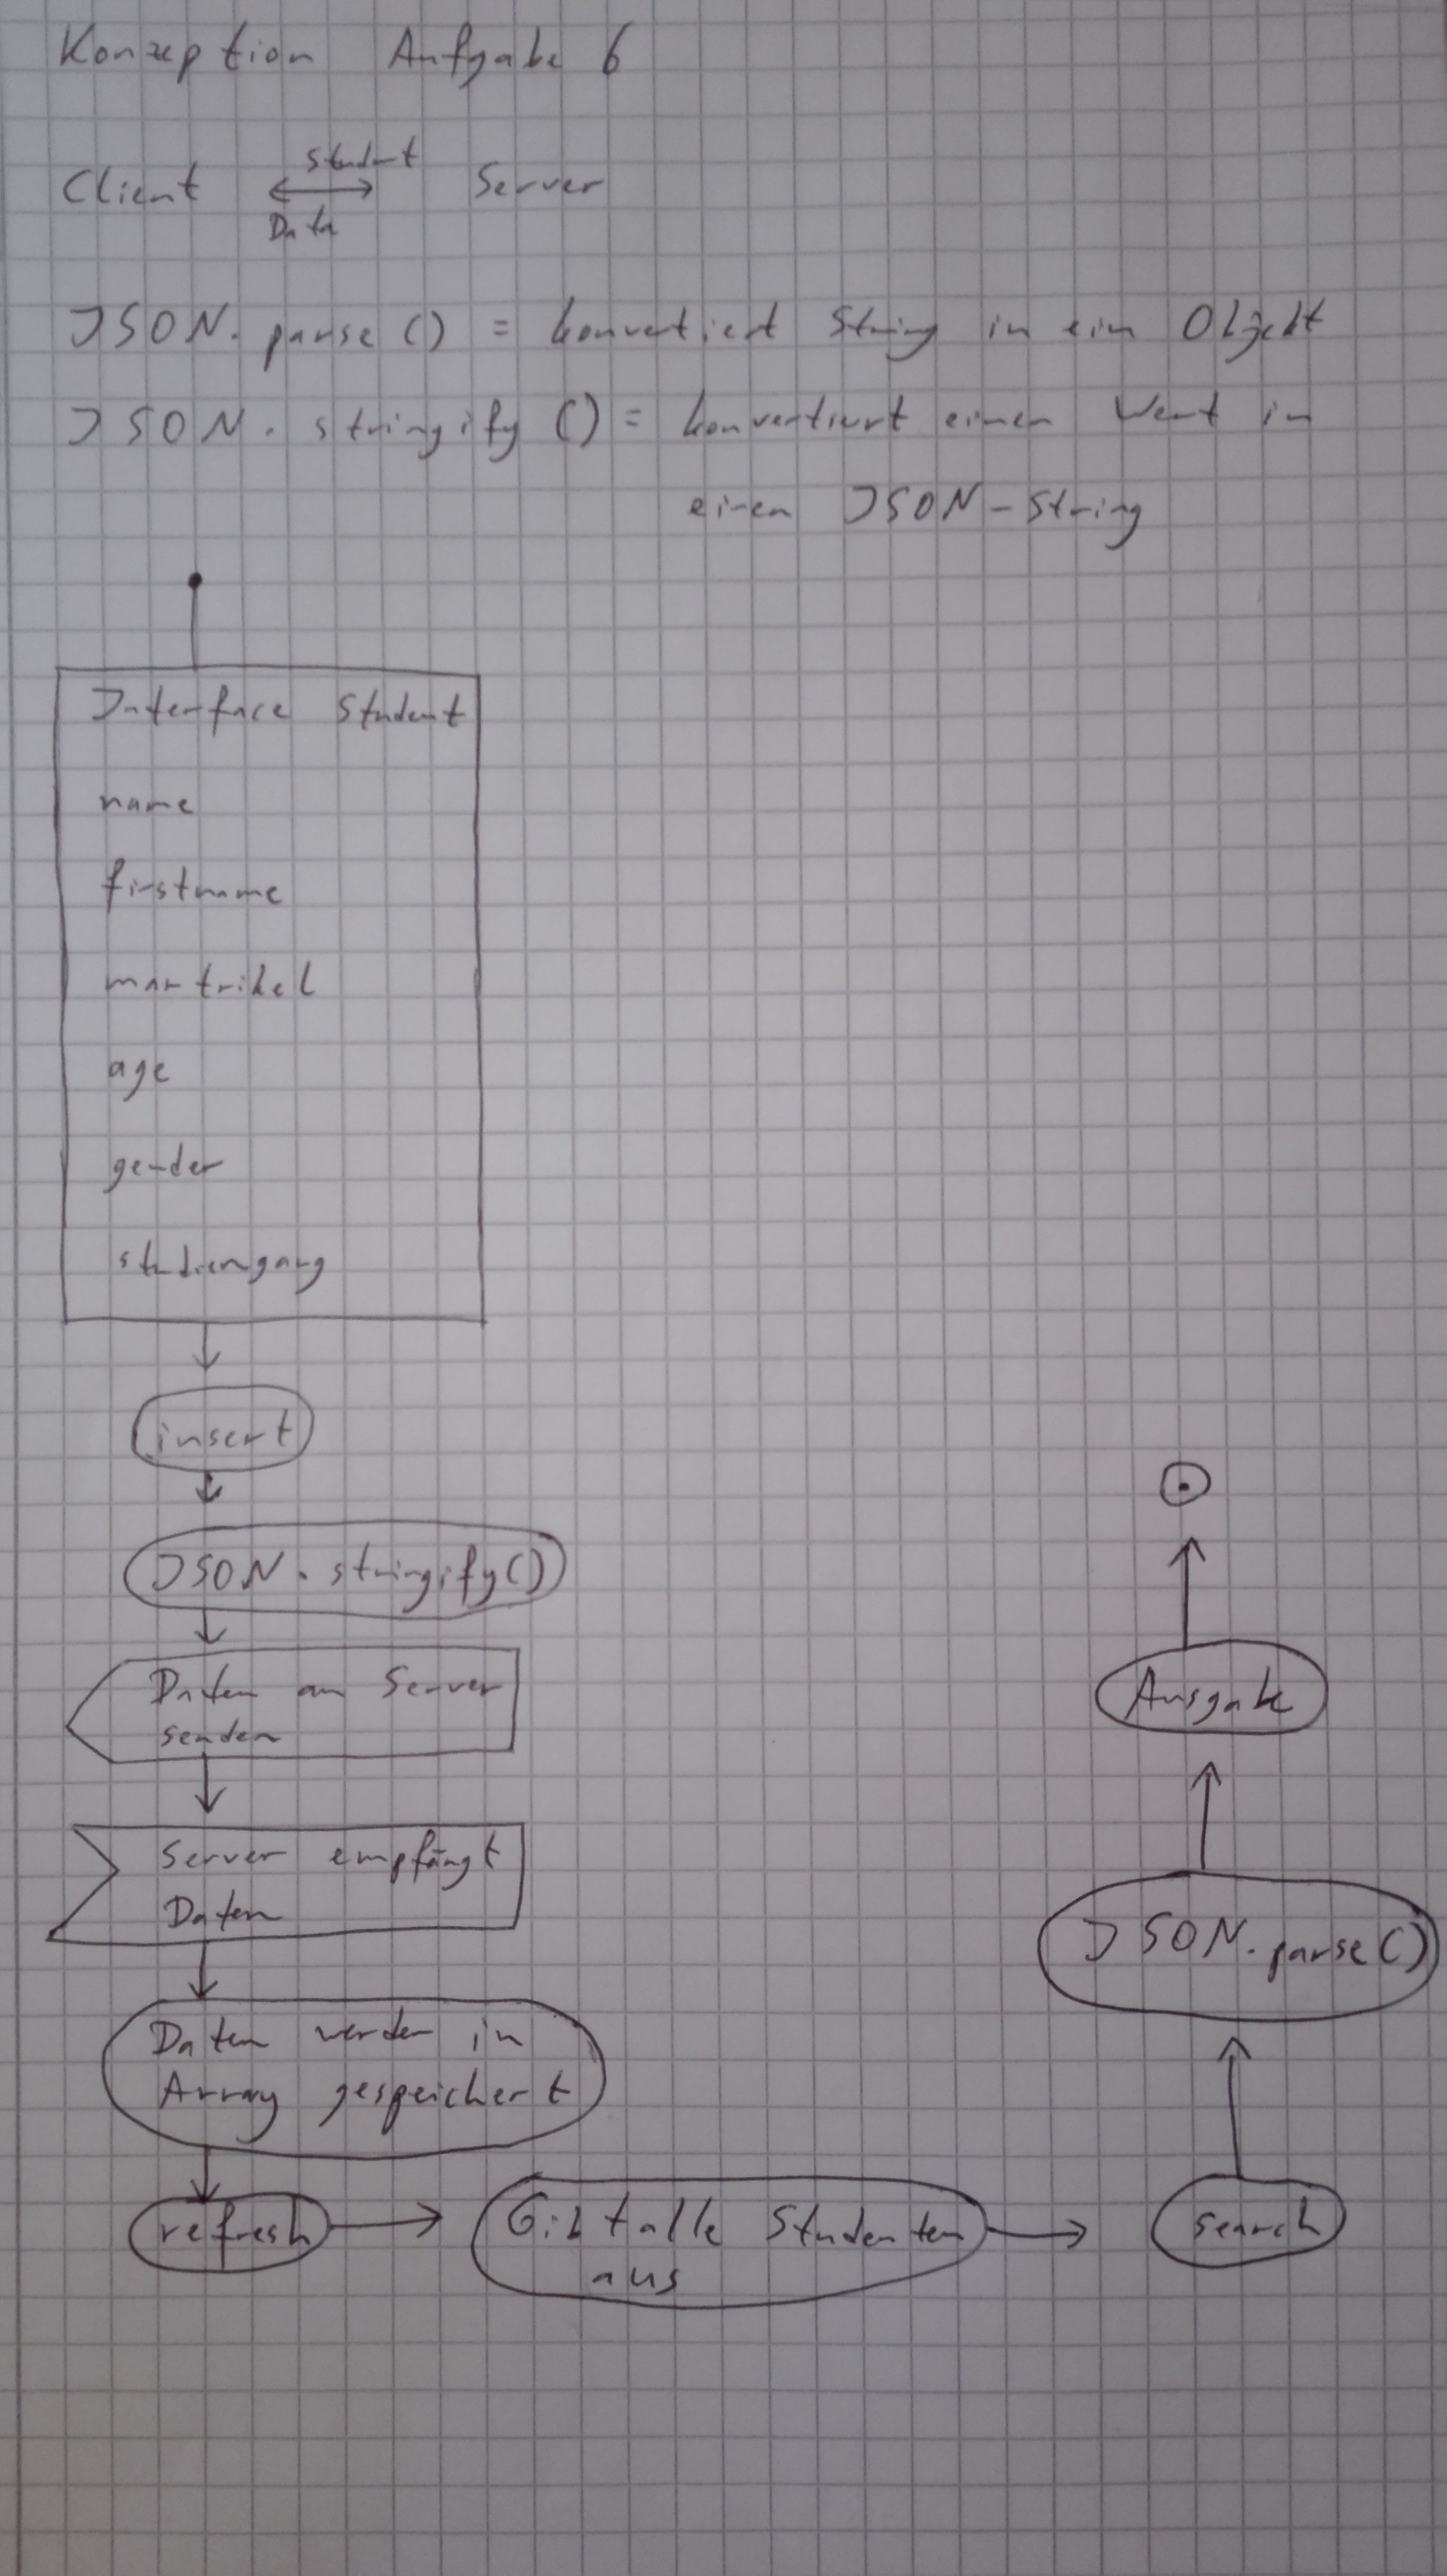 Konzeption Aufgabe 6
Student
Client Server
Data
JSON.parse() = konvertiert String in ein Objekt
JSON.stringify() = konvertiert einen Wert in
einen JSON-String
Interface Student
name
firstname
martrikel
age
gender
studiengang
insert
JSON.stringify()
Daten an Server
senden
Server empfängt
Daten
Daten werden in
Array gespeichert
refresh
Gibt alle Studenten
aus
search
JSON.parse()
Ausgabe